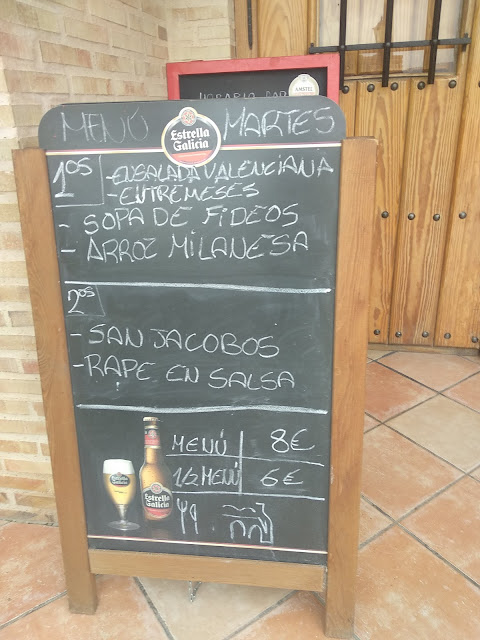 HORARIO
AMSTEL
MENÚ MARTES
Estrella
Galicia
1os
- ENSALADA VALENCIANA
- ENTREMESES
- SOPA DE FIDEOS
- ARROZ MILANESA
2os
- SAN JACOBOS
- RAPE EN SALSA
MENÚ 8€
1/2 MENÚ 6€
Estrella
Galicia